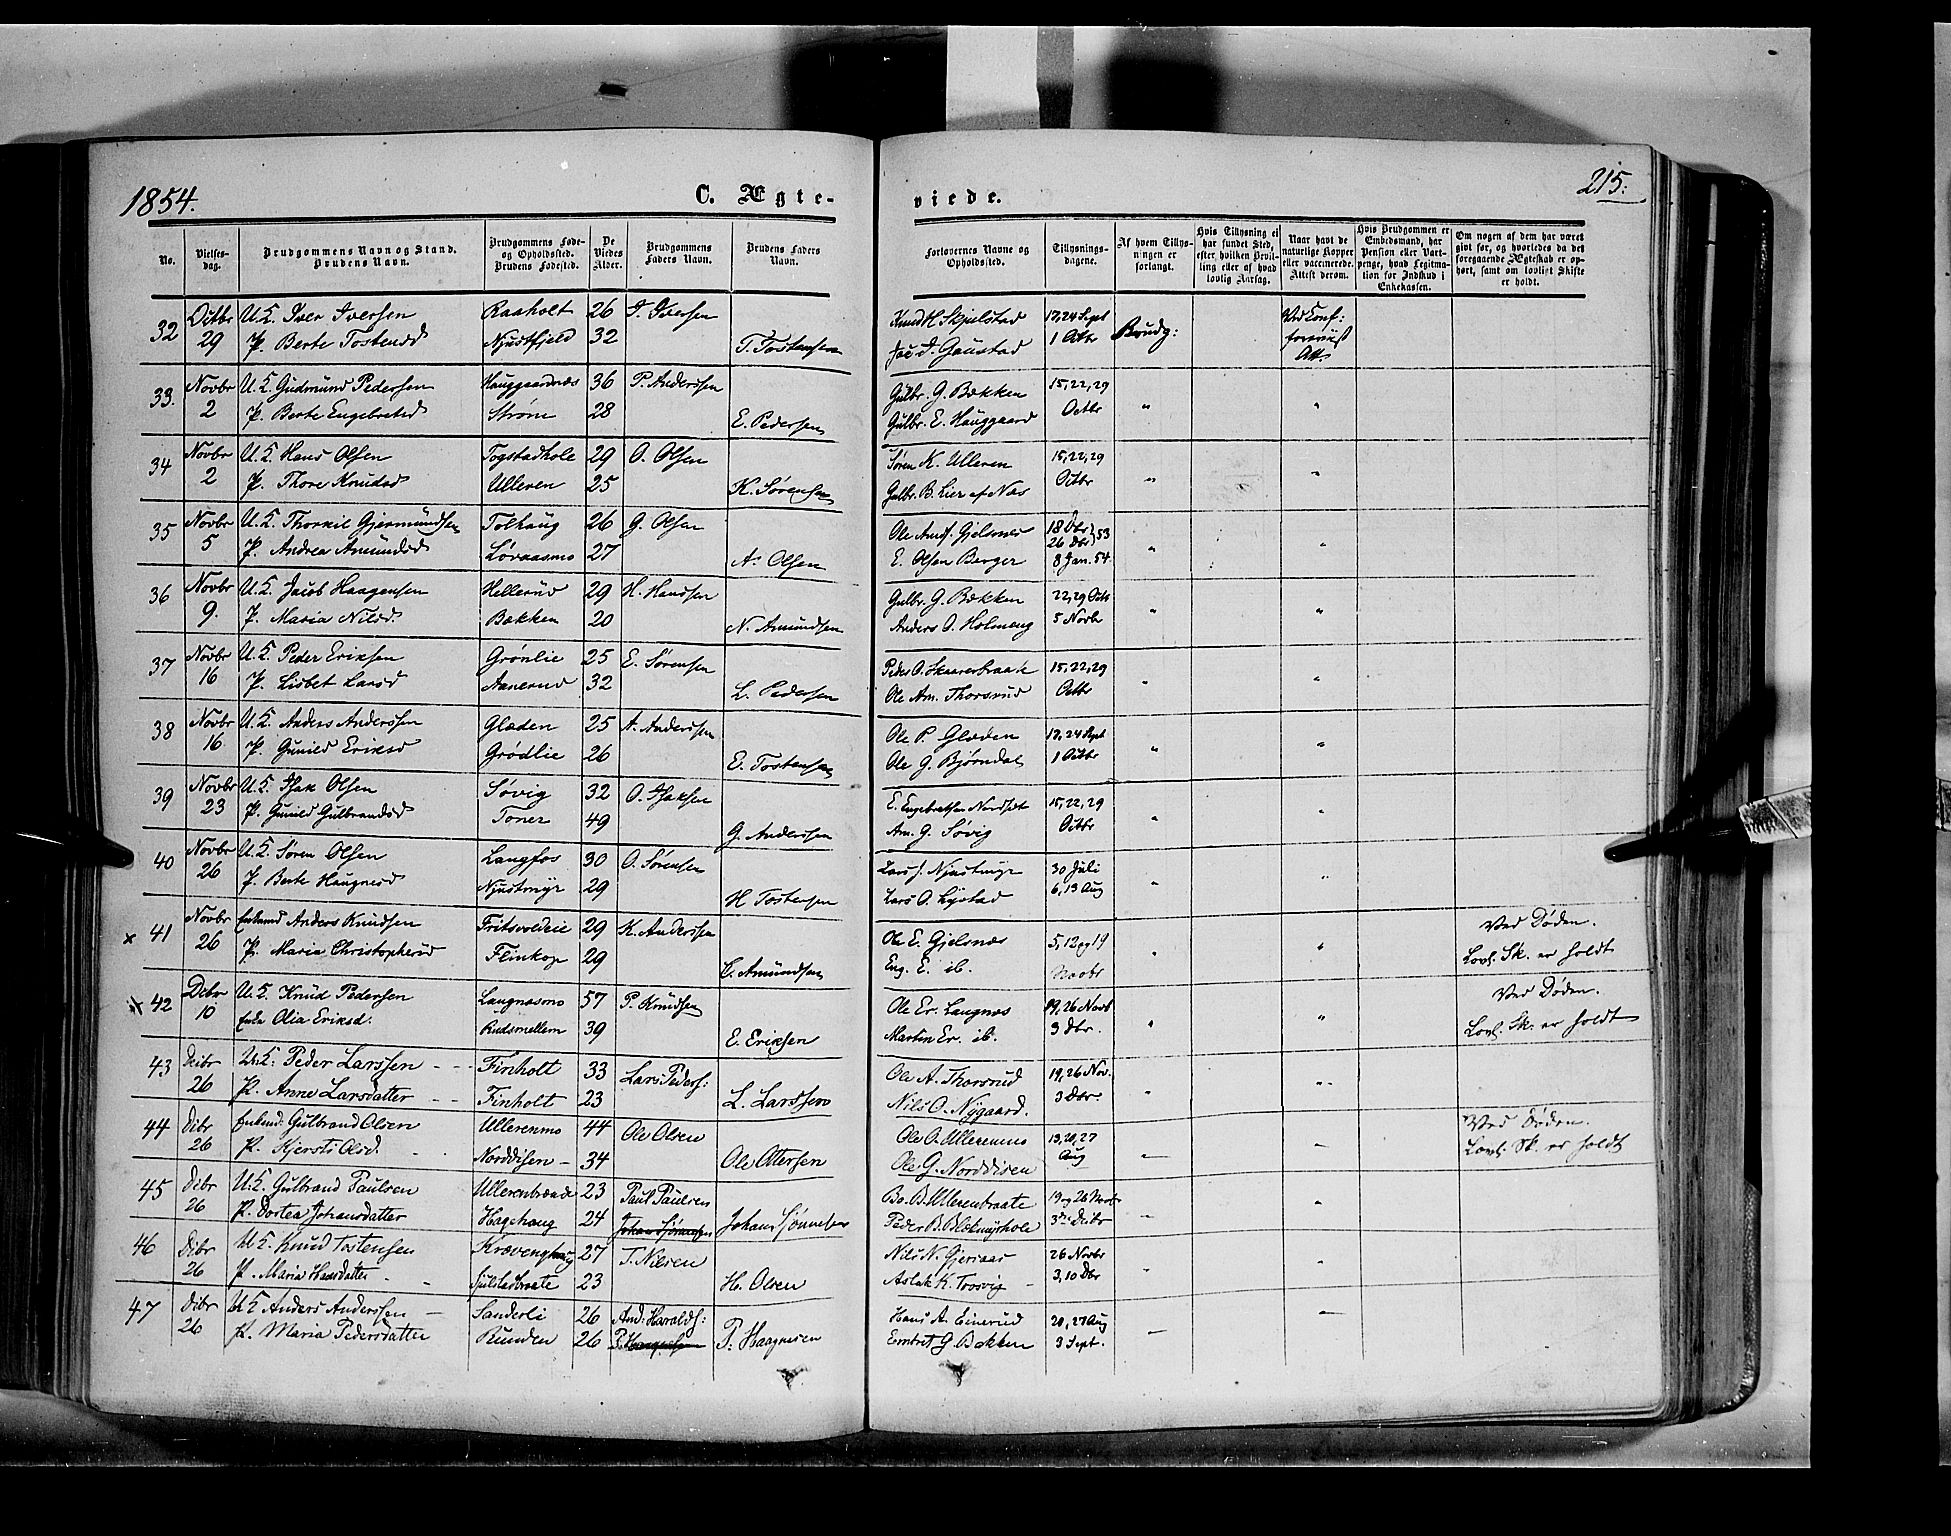 1854.
C. Ægte-
viede.
215.
No.
Vielses-
dag.
Brudgommens Navn og Stand.
Brudens Navn.
Brudgommens Føde-
og Opholdssted.
Brudens Fødested.
De
Viedes
Alder.
Brudgommens
Faders Navn.
Brudens Faders
Navn.
Forlovernes Navne og
Opholdssted.
Tillysnings-
dagene.
Af hvem Tillys-
ningen er
forlangt.
Hvis Tillysning ei
har fundet Sted,
efter hvilken Bevil-
ling eller af hvad
lovlig Aarsag.
Naar havt de
naturlige Kopper
eller vaccinerede.
Attest derom.
Hvis Brudgommen er
Embedsmand, har
Pension eller Vart-
penge, hvad Legitima-
tion for Indskud i
Enkekassen.
Om nogen af dem har været
gift før, og hvorledes da det
foregaaende Ægteskab er op-
hørt, samt om lovligt Skifte
er holdt.
32 Octbr U.K. Iver Iversen Raaholt 26 I. Iversen Knud H. Skjelstad 17, 24 Sept Brudg: Ved Conf:
29 P. Berte Tostensd Njustfjeld 32 T. Tostensen Gaustad 1 Octbr foreviist
Att.
33. Novbr U.K. Gudmund Pedersen Hauggaardnæs 36 P. Anderssen Gulbr. G. Bekken 15, 22, 29
2 P. Berte Engebretsd Strøm 28 E. Pedersen Gulbr. E. Hauggaard Octbr " "
34 Novbr U.K. Hans Olsen Togstadhole 29 O. Olsen Søren K. Ulleren 15, 22, 29
2 P. Thore Knudsd Ulleren 25 K. Sørensen Gulbr. B. Lier af Næs Octbr " "
35 Novbr U.K. Thorkil Gjermundsen Tolhaug 26 G. Olsen Ole Amds. Gjelsnæs 18 Dbr
5 P. Andrea Amundsd Løvaasmo 27 A. Olsen E. Olsen Berger 26 Dbr 53 8 Jan. 54. " "
36 Novbr U.K. Jacob Haagensen Hellerud 29 H. Hansen Gulbr. G. Bekken 22, 29 Octb
9. P. Maria Nilsd. Bekken 20 N. Amundsen Anders O. Holmeng 5 Novbr " "
37 Novbr U.K. Peder Eriksen Grønlie 25 E. Sørensen Peder O. Skaarerbraate 15, 22, 29
16 P. Lisbet Larsd Aanerud 32 L. Pedersen Ole Am. Thorsrud Octbr " "
38 Novbr U.K. Anders Anderssen Glæden 25 A. Anderssen Ole P. Glæden 17, 24 Sept
16 P. Gunild Eriksd Grødlie 26 E. Tostensen Ole G. Bjørndal 1 Octbr " "
39 Novbr U.K. Isak Olsen Søvig 32 O. Isaksen E. Engebretsen Nordset 15, 22, 29
23 P. Gunild Gulbrandsd Toner 49 G. Anderssen Am. G. Søvig Octbr " "
40 Novbr U.K. Søren Olsen Langfos 30 O. Sørensen Lars J. Njustmyr 30 Juli
26 P. Berte Haugnesd Njustmyr 29 H Tostensen Lars O. Lystad 6, 13 Aug " "
x 41 Novbr Enkemd Anders Knudsen Fritsvoldeie 29 K. Anderssen Ole E. Gjelsnæs 5, 12 og 19 Ved Døden.
26 P. Maria Christophersd Flinkop 29 C. Amundsen Eng. E. ib. Novbr " " Lovl. Sk. er holdt
x 42 Dcbr U.K. Knud Pedersen Langnæsmo 57 P. Knudsen Ole Er. Langnæs 19, 26 Novb Ved Døden.
10 Enke Olia Eriksd. Rudsmellem 39 E. Eriksen Marten Er. ib. 3 Dbr. " " Lovl. Sk. er holdt
43 Dcbr U.K. Peder Larssen Finholt 33 Lars Peders: Ole A. Thorsrud 19, 26 Nov.
26 P. Anne Larsdatter Finholt 23 L. Larssen Nils O. Nygaard. 3 Dbr. " "
44 Dcbr Enkmd: Gulbrand Olsen Ullerenmo 44 Ole Olsen Ole O. Ullerenmo 13, 20, 27 Ved Døden.
26 P. Kjersti Olsd. Norddisen 34 Ole Ottersen Ole G. Norddisen Aug " Lovl. Sk. er holdt
45 Dcbr U.K. Gulbrand Paulsen Ullerenbraade 23 Paul Paulsen Bo. B. Ullerenbraate 19 og 26 Novbr
26 P. Dortea Johansdatter Hagehaug 24 Johan Sønnesen Johan Sønnesen Peder B. Blekmyrhole 3die Dcibr "
46 Dcbr U.K. Knud Tostensen Krævenghaug 27 T. Nilsen Nils N. Gjersaas 26 Novbr
26 P. Maria Hansdatter Sulstadbraate 23 H. Olsen Aslak K. Trosvig 3, 10 Dbr "
47 Dcbr U.K. Anders Anderssen Sanderli 26 And: Haralds: Hans A. Einerud 20, 27 Aug
26 P. Maria Pedersdatter Runden 26 P. Haagensen P: Haagensen Embret G. Bakken 3 Sept.